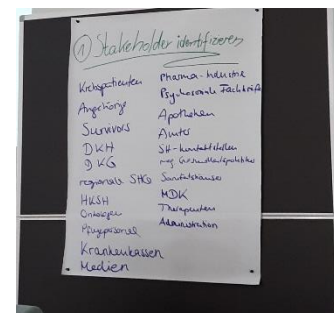 ① Stakeholder identifizieren
Krebspatienten
Angehörige
Survivors
DKH
DKG
regionale SHG
HKSH
Onkologen
Pflegepersonal
Krankenkassen
Medien
Pharma-Industrie
Psychosoziale Fachkräfte
Apotheken
Ämter
SH-Kontaktstellen
Gesundheitspolitiker
Sanitätshäuser
MDK
Therapeuten
Administration